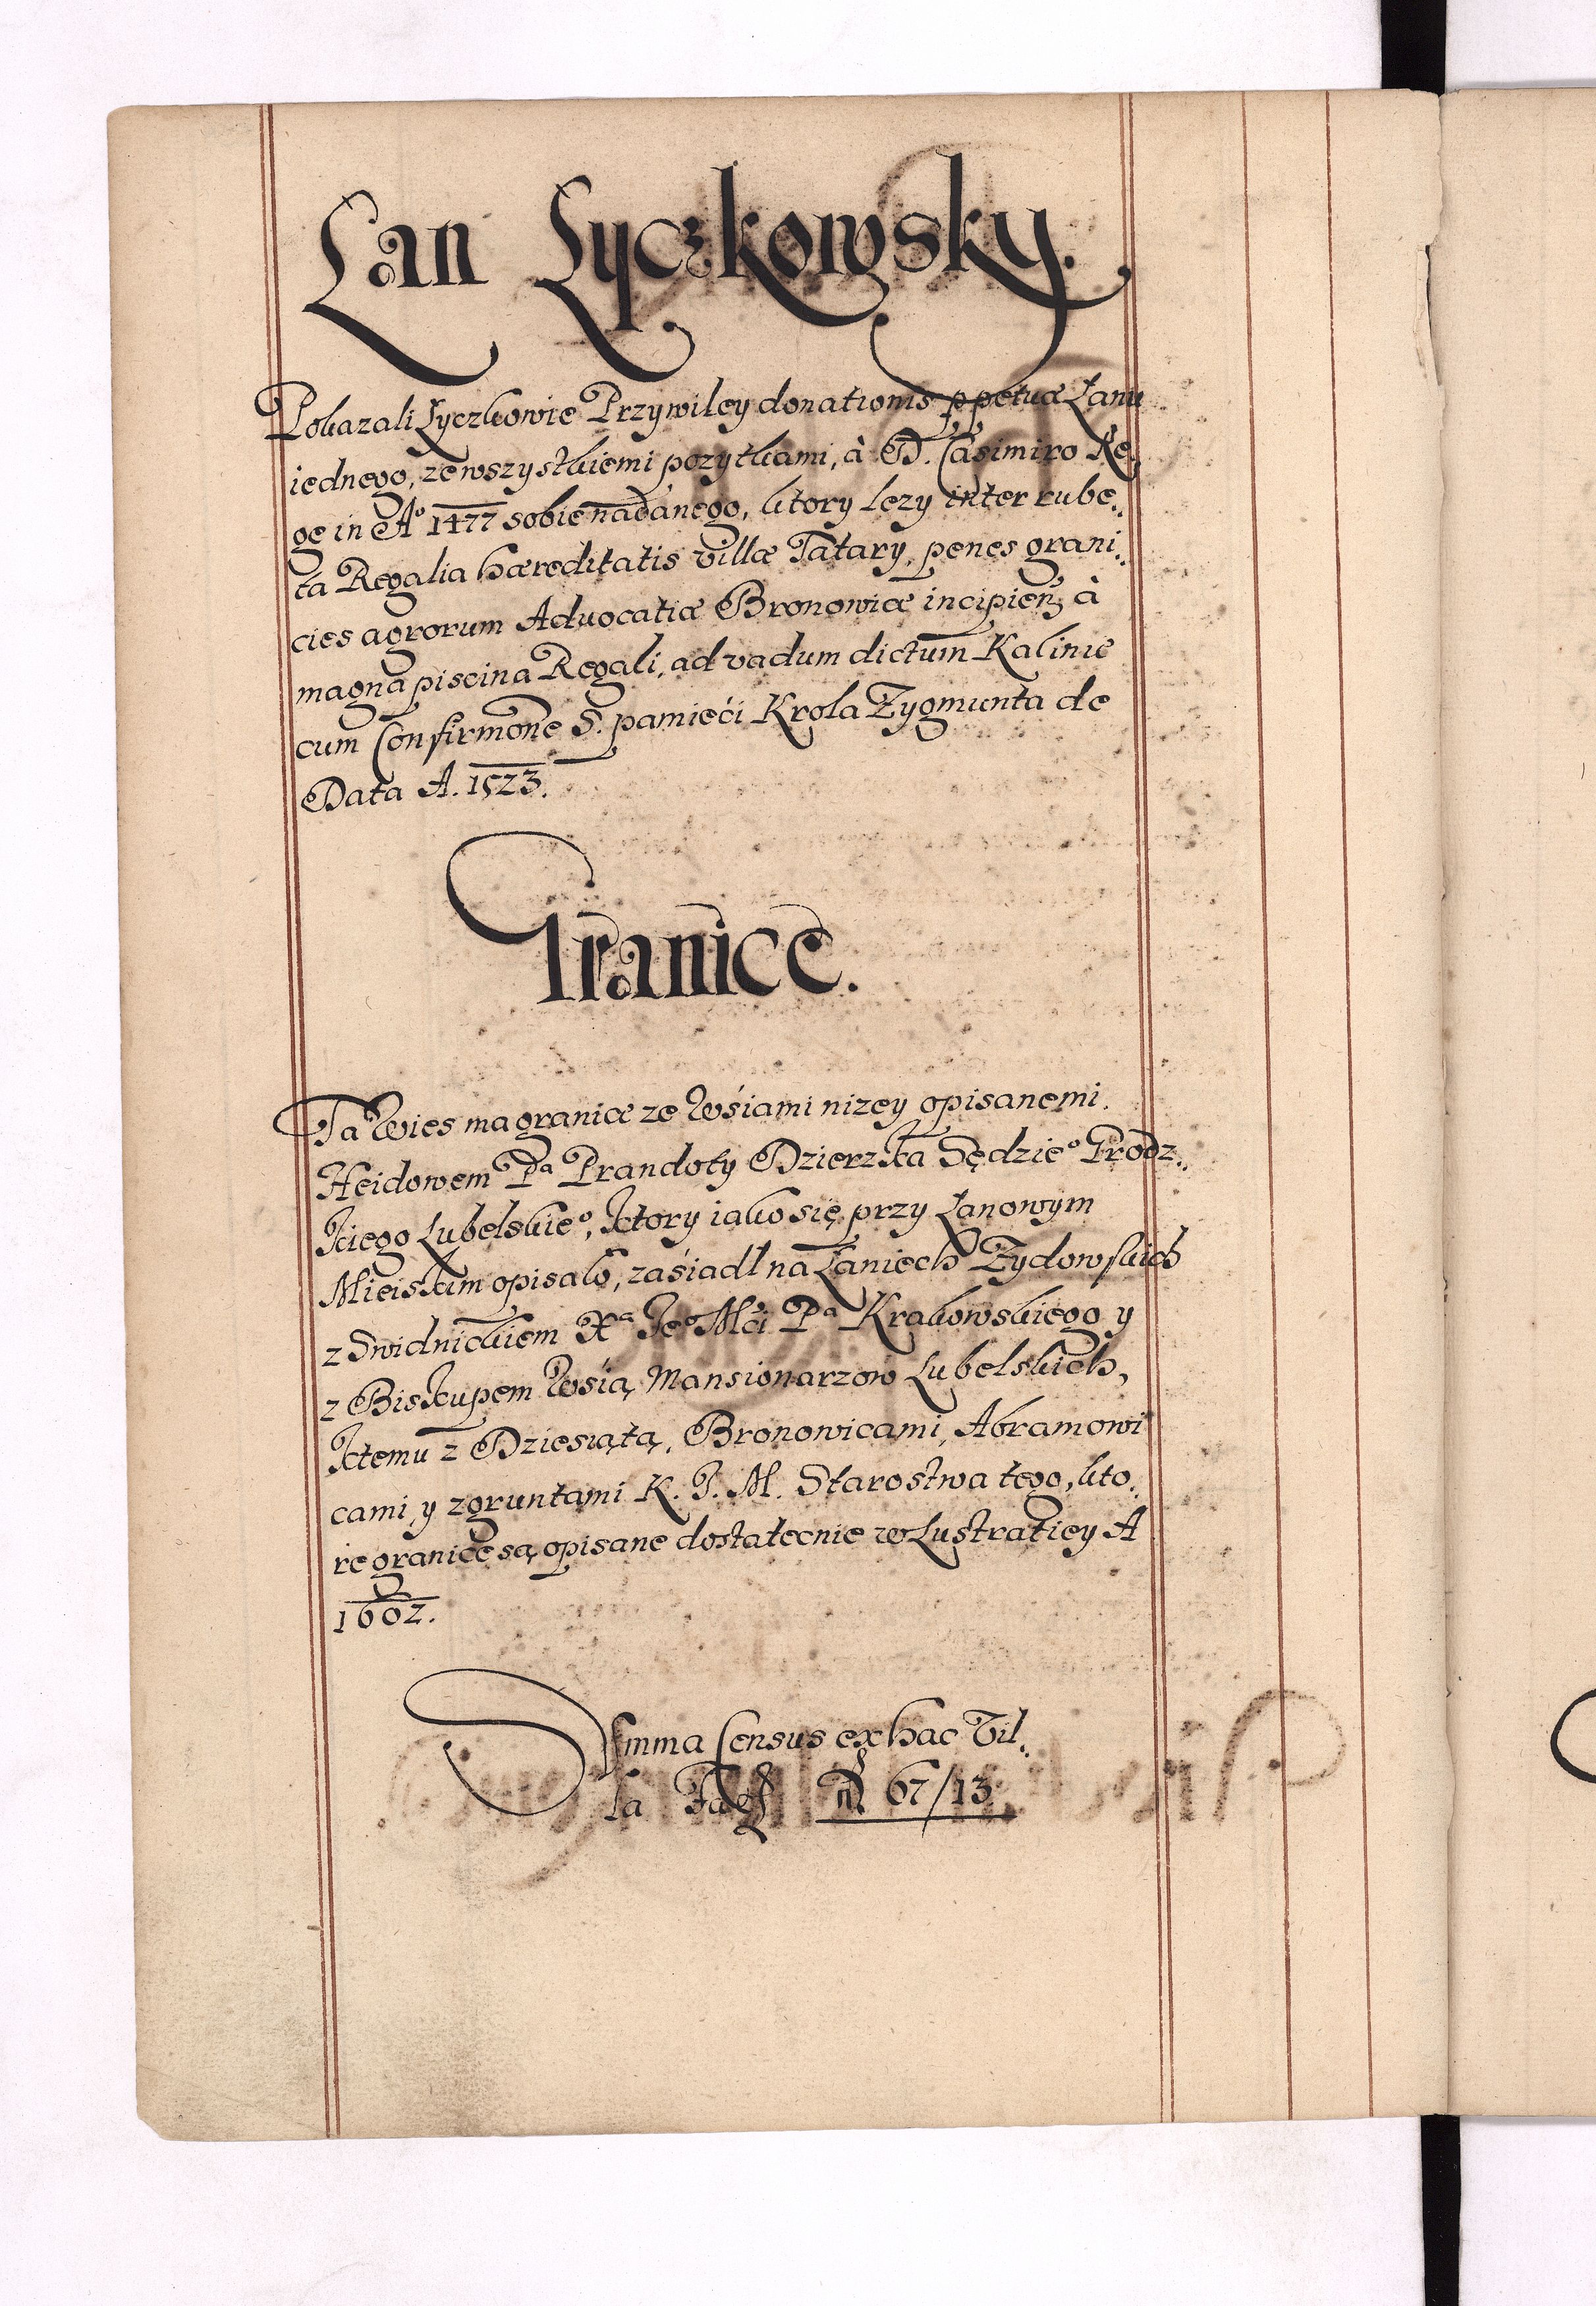 Łan Łyczkowsky.
Pokazali Łyczkowie Przywiley donationis ppetuæ Łanu
iednego, ze wszystkiemi pozytkami, à D. Casimiro Re„
ge in Aº 1477 sobie nadanego, ktory lezy inter rube„
ta Regalia hæreditatis villæ Tatary, penes grani„
cies agrorum Aduocatiæ Bronowicæ incipien à
magna piscina Regali, ad vadum dictum Kalinie
cum Confirmone S. pamięći Krola Zygmunta de
Data A. 1523.
Granice.
Ta Wies ma granice ze Wśiami nizey opisanemi.
Heidowem Pª Prandoty Dzierzka Sędzieº Grodz„
kiego Lubelskieº, ktory iako się przy Łanowym
Mieiskim opisało, zaśiadł na Łaniech Zydowskich
z Swidnickiem Xª Jeº Mći Pª Krakowskiego y
z Biskupem Wsią Mansionarzow Lubelskich,
ktemu z Dziesiątą, Bronowicami, Abramowi
cami, y z gruntami K. J. M. Starostwa tego, kto„
re granice są opisane dostatecnie w Lustratiey A
1602.
Summa Census ex hac Vil„
la Facit 67/13